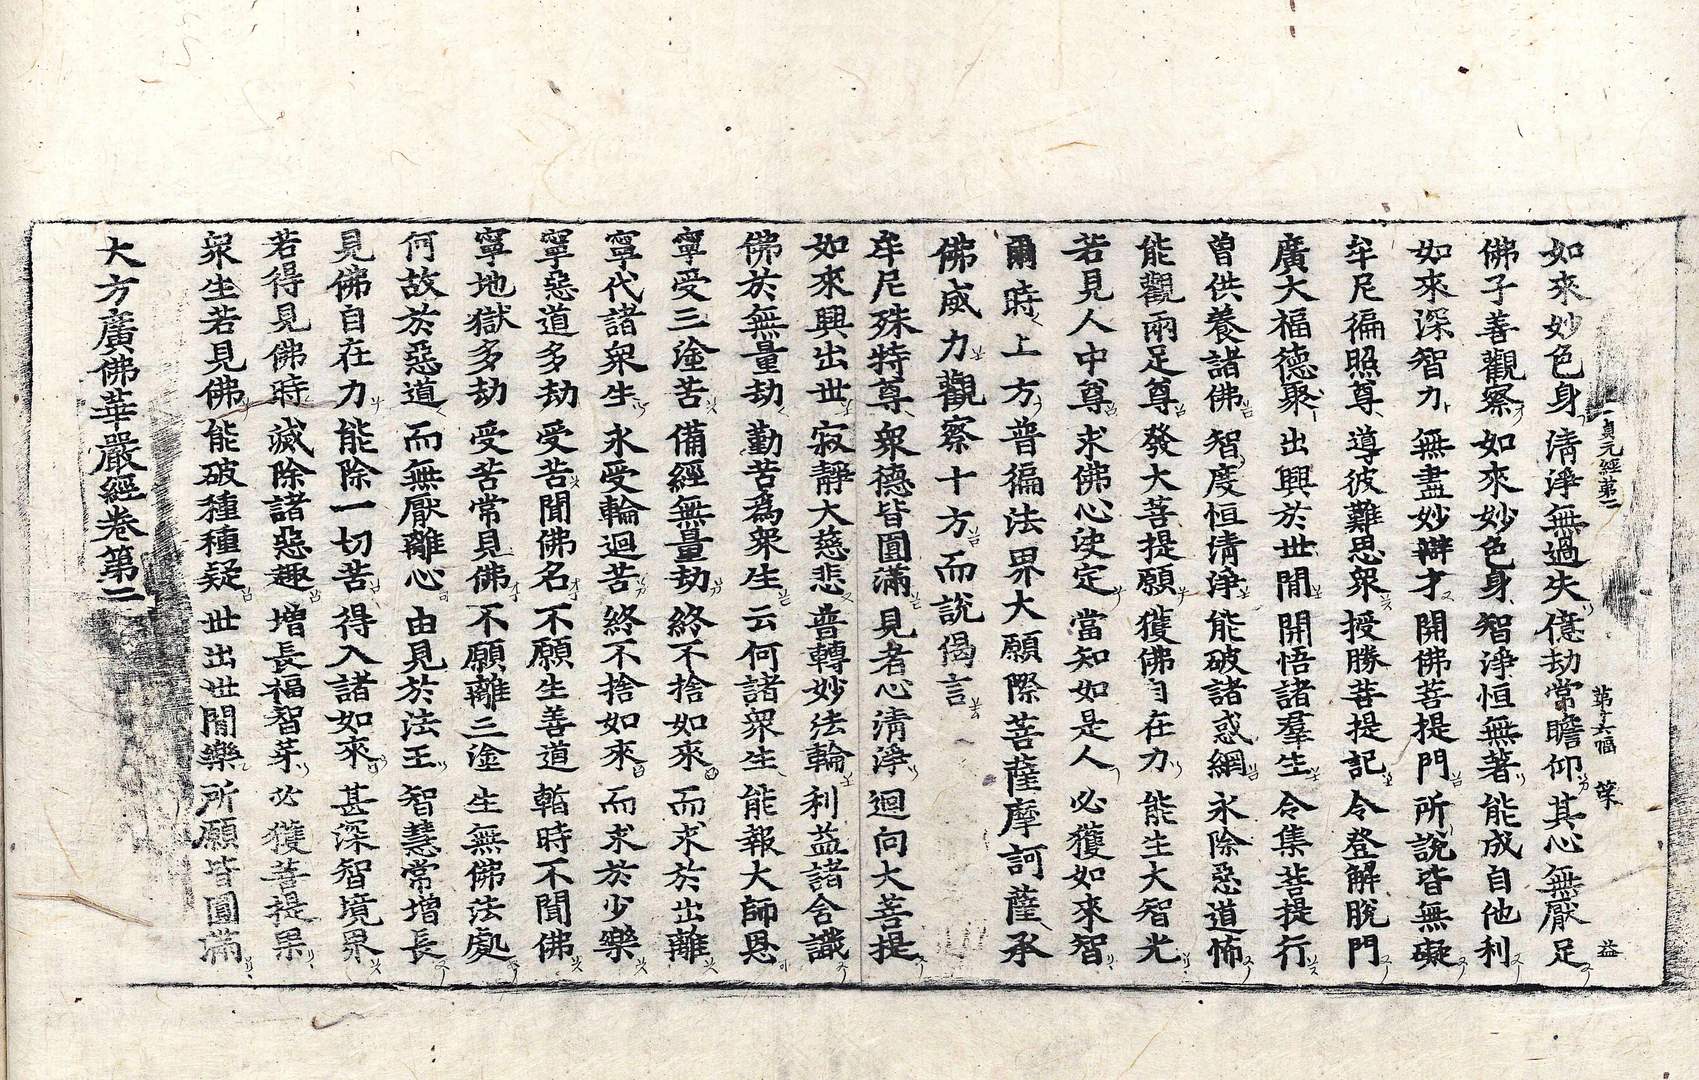 如來妙色身 清淨無過失 億劫常瞻仰 其心無厭足
佛子善觀察 如來妙色身 智淨恒無著 能成自他利
如來深智力 無盡妙辯才 開佛菩提門 所說皆無礙
牟尼徧照尊 導彼難思衆 授勝菩提記 令登解脫門
廣大福德聚 出興於世間 開悟諸羣生 令集菩提行
曾供養諸佛 智度恒清淨 能破諸惑網 永除惡道怖
能觀兩足尊 發大菩提願 獲佛自在力 能生大智光
若見人中尊 求佛心決定 當知如是人 必獲如來智
爾時上方普徧法界大願際菩薩摩訶薩承
佛威力觀察十方而說偈言
牟尼殊特尊 衆德皆圓滿 見者心清淨 迴向大菩提
如來興出世 寂靜大慈悲 普轉妙法輪 利益諸含識
佛於無量劫 勤苦爲衆生 云何諸衆生 能報大師恩
寧受三塗苦 備經無量劫 終不捨如來 而求於出離
寧代諸衆生 永受輪迴苦 終不捨如來 而求於少樂
寧惡道多劫 受苦聞佛名 不願生善道 暫時不聞佛
寧地獄多劫 受苦常見佛 不願離三塗 生無佛法處
何故於惡道 而無厭離心 由見於法王 智慧常增長
見佛自在力 能除一切苦 得入諸如來 甚深智境界
若得見佛時 滅除諸惡趣 增長福智芽 必獲菩提果
衆生若見佛 能破種種疑 世出世間樂 所願皆圓滿
大方廣佛華嚴經卷第二
貞元經第二 第十六幅 葉 益